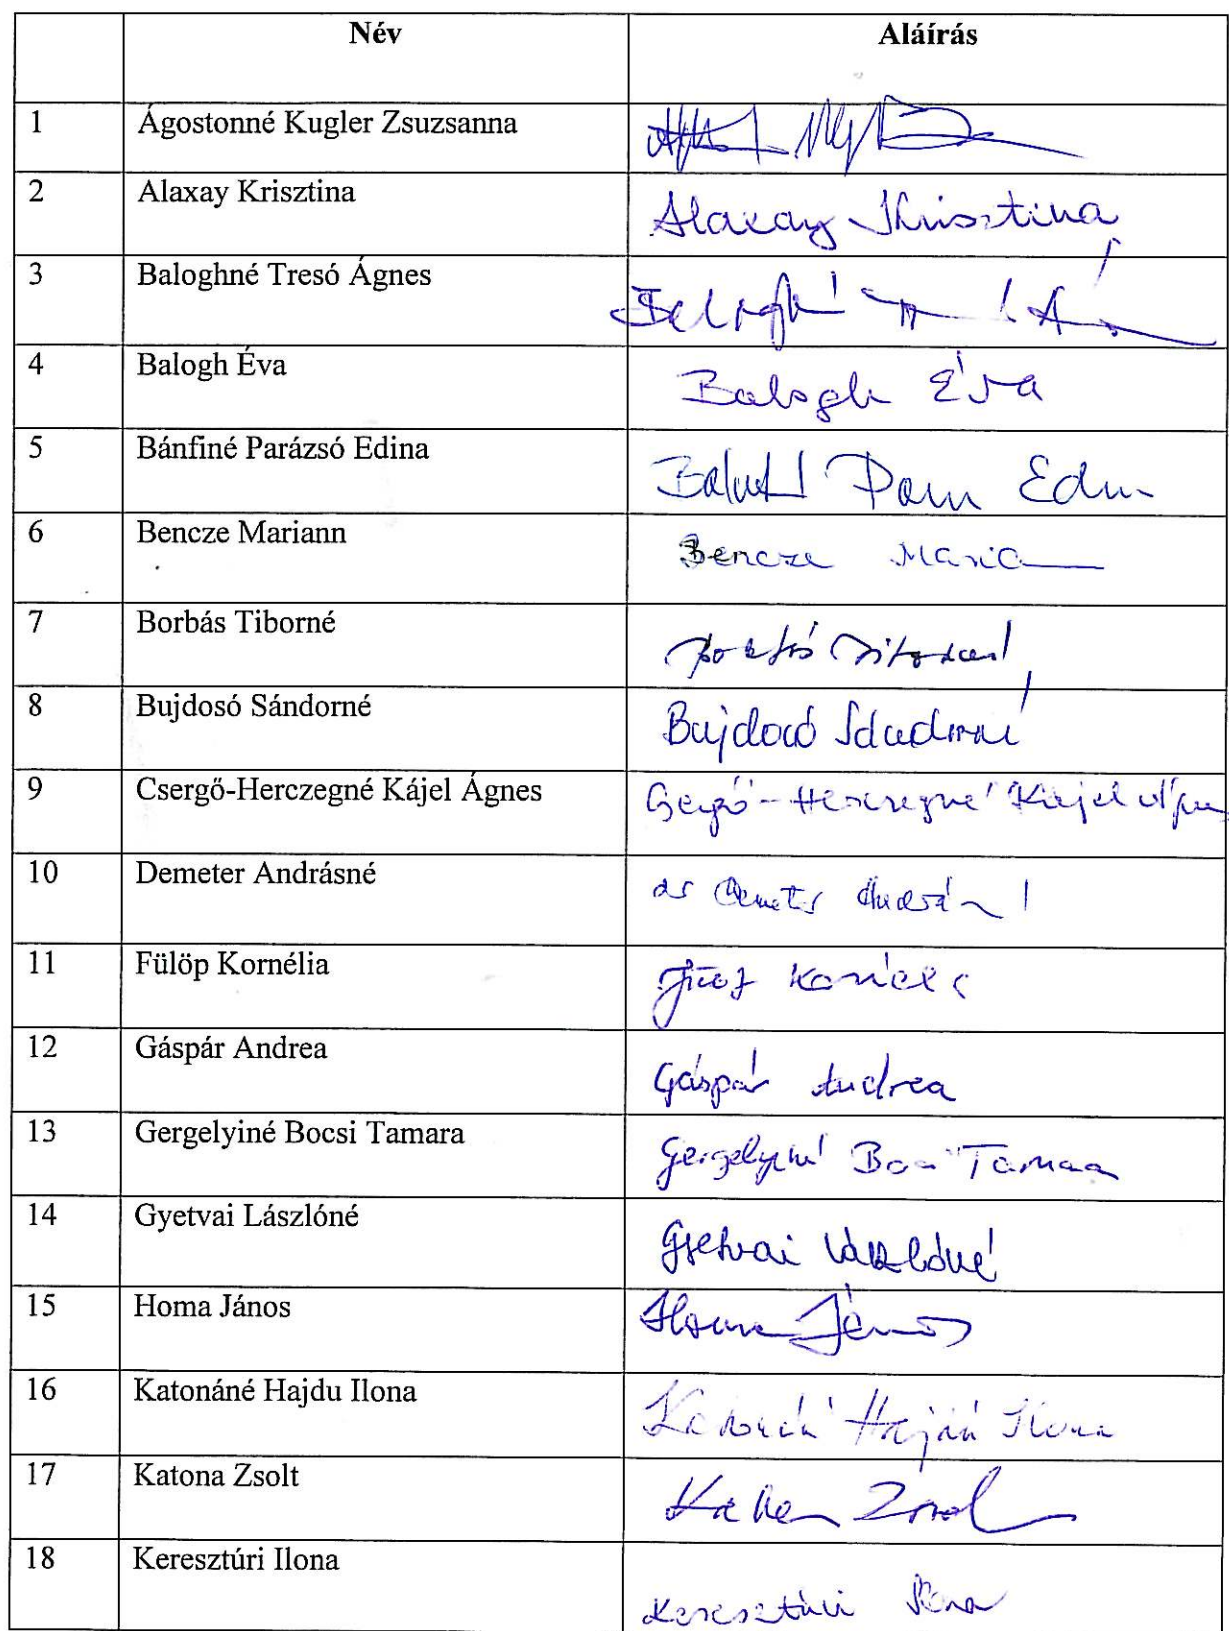 Név Aláírás
1 Ágostonné Kugler Zsuzsanna
2 Alaxay Krisztina Alaxay Krisztina
3 Baloghné Tresó Ágnes
4 Balogh Éva Balogh Éva
5 Bánfiné Parázsó Edina
6 Bencze Mariann Bencze
7 Borbás Tiborné
8 Bujdosó Sándorné Bujdosó Sándorné
9 Csergő-Herczegné Kájel Ágnes Csergő-Herczegné Kájel Ágnes
10 Demeter Andrásné dr Demeter
11 Fülöp Kornélia
12 Gáspár Andrea Gáspár Andrea
13 Gergelyiné Bocsi Tamara Gergelyiné Bocsi Tamara
14 Gyetvai Lászlóné Gyetvai Lászlóné
15 Homa János Homa János
16 Katonáné Hajdu Ilona Katonáné Hajdu Ilona
17 Katona Zsolt
18 Keresztúri Ilona Keresztúri Ilona